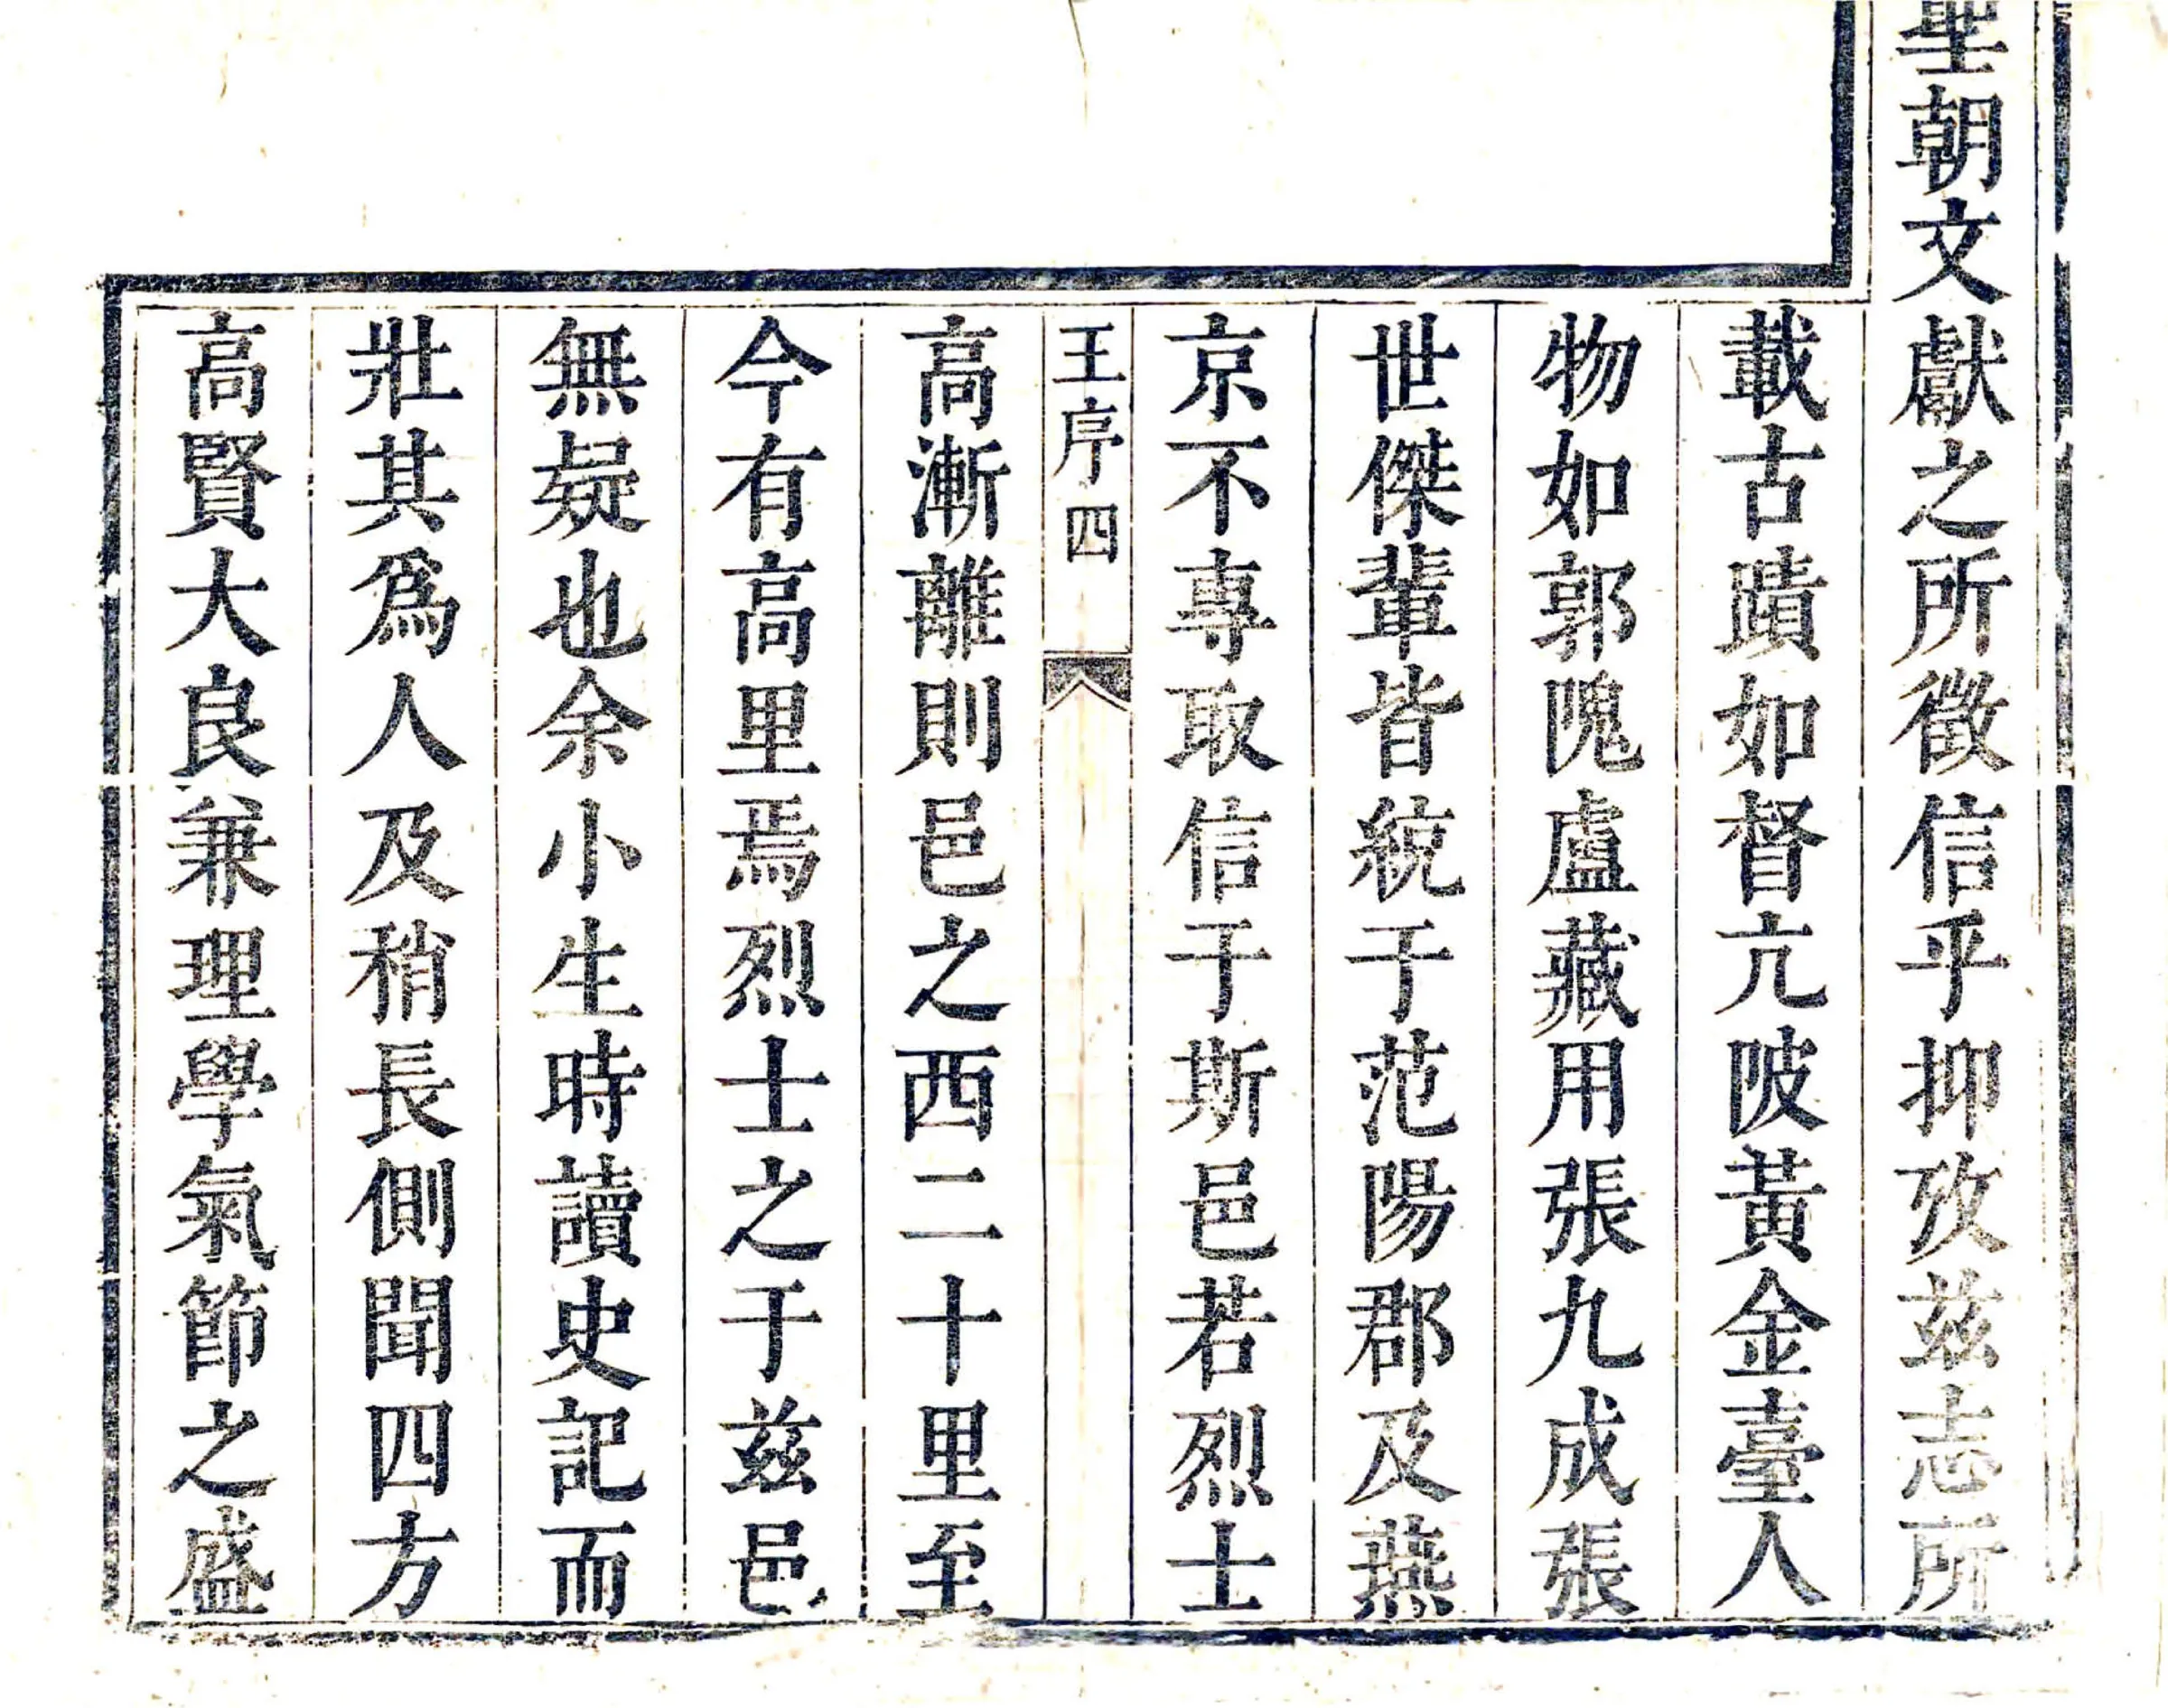 聖朝文獻之所徵信乎抑攷兹志所
載古蹟如督亢陂黃金臺人
物如郭隗盧藏用張九成張
世傑輩皆統于范陽郡及燕
京不專取信于斯邑若烈士
王序四
高漸離則邑之西二十里至
今有高里焉烈士之于兹邑
無疑也余小生時讀史記而
壯其爲人及稍長側聞四方
高賢大良兼理學氣節之盛